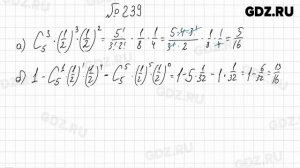 GDZ.RU
№239
а) C₅³·(1/2)³(1/2)² = 5!/(3!2!)·1/8·1/4 = 5·4·3!/(3!·2)·1/8·1/4 = 5/16
б) 1 - C₅¹(1/2)¹(1/2)⁴ - C₅⁵(1/2)⁵(1/2)⁰ = 1-5·1/32-1·1/32 = 1-6/32 = 13/16
GDZ.RU